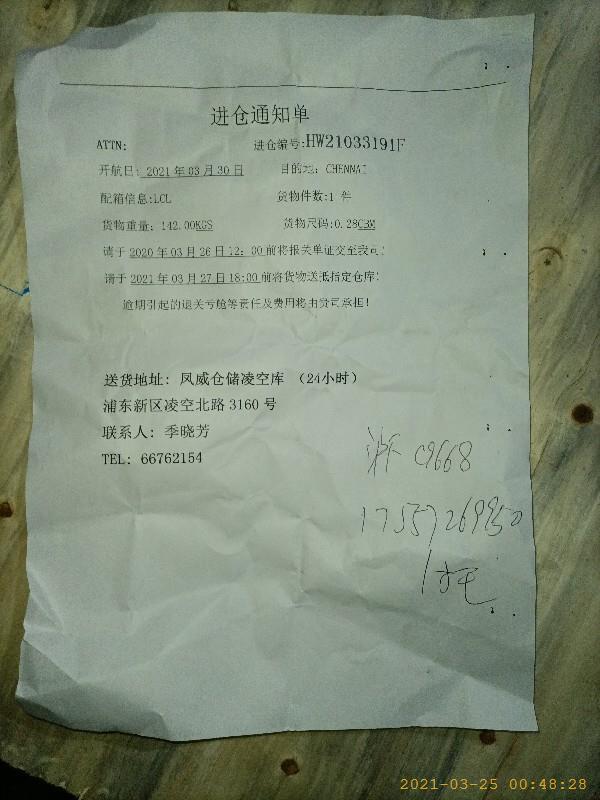 进仓通知单
ATTN: 进仓编号:HW21033191F
开航日: 2021 年 03 月 30 日 目的地: CHENNAI
配箱信息:LCL 货物件数:1 件
货物重量: 142.00KGS 货物尺码:0.28CBM
请于 2020 年 03 月 26 日 12: 00 前将报关单证交至我司!
请于 2021 年 03 月 27 日 18:00 前将货物送抵指定仓库!
逾期引起的退关亏舱等责任及费用将由贵司承担!
送货地址: 凤威仓储凌空库 (24小时)
浦东新区凌空北路 3160 号
联系人: 季晓芳
TEL: 66762154
C9668
17557269950
1 托
2021-03-25 00:48:28